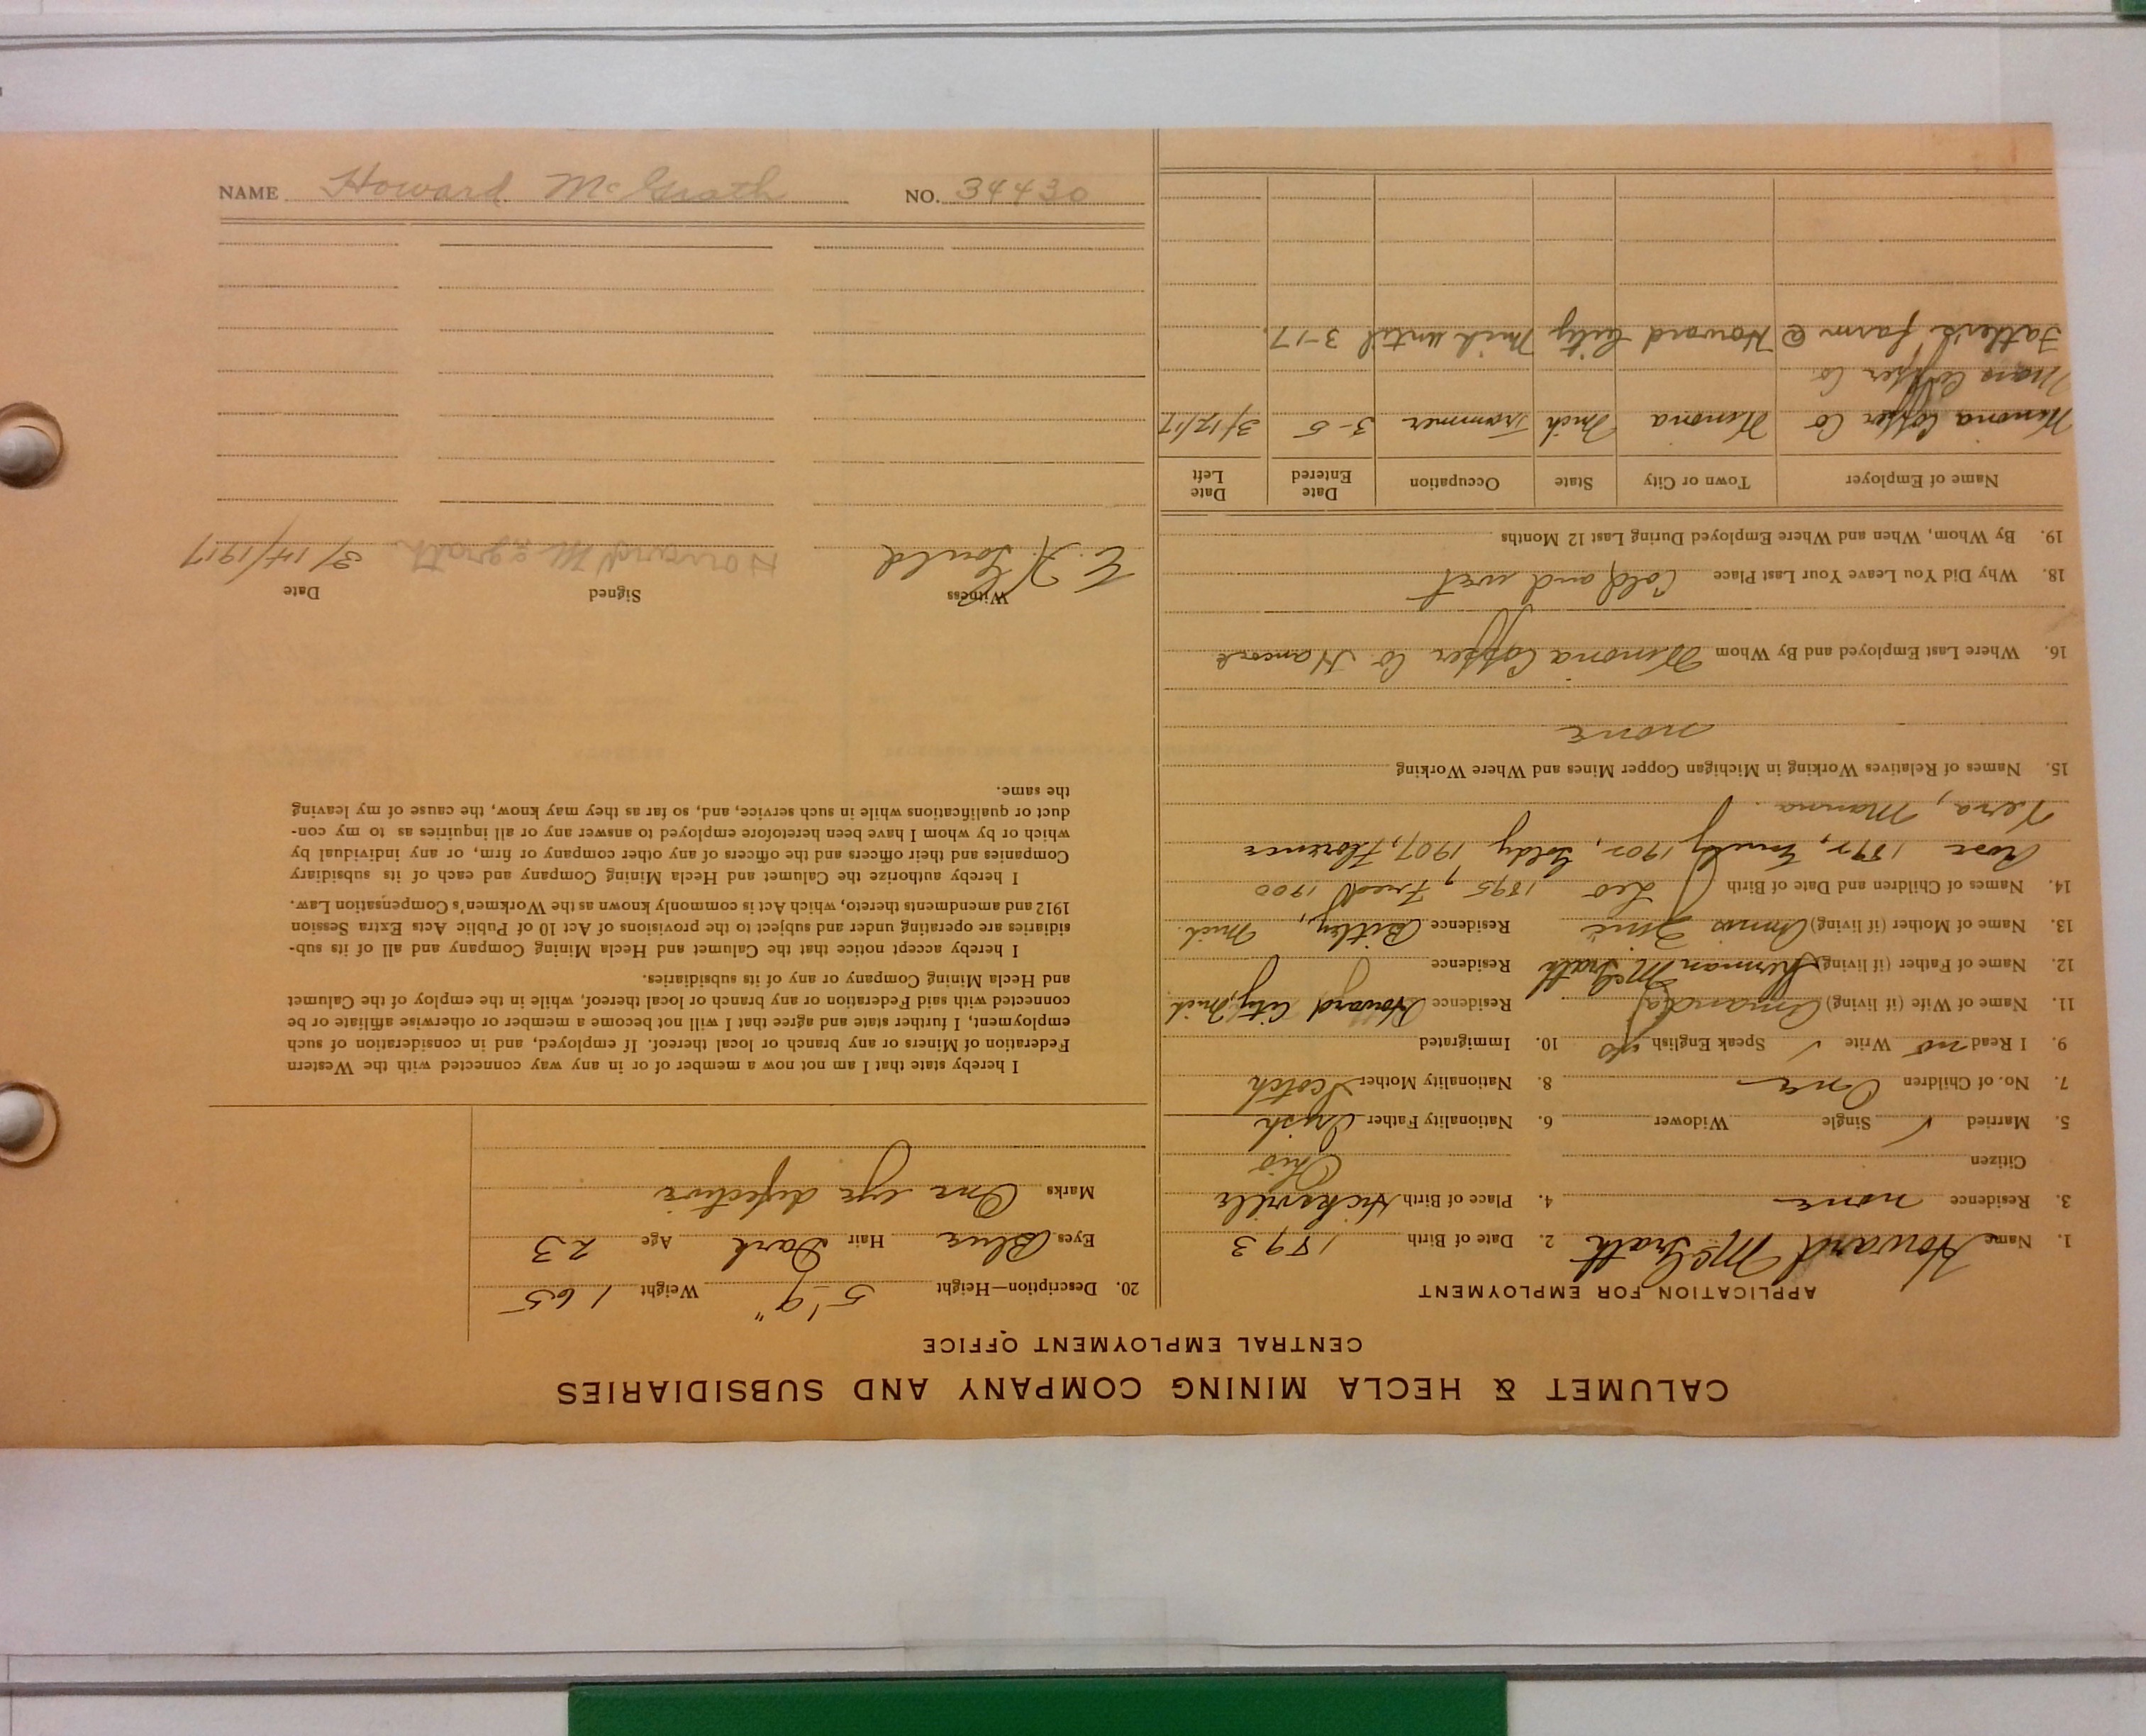 CALUMET & HECLA MINING COMPANY AND SUBSIDIARIES
CENTRAL EMPLOYMENT OFFICE
APPLICATION FOR EMPLOYMENT
1. Name Howard McGrath 2. Date of Birth 1893
3. Residence none 4. Place of Birth Hicksville
Citizen Ohio
5. Married ✓ Single Widower 6. Nationality Father Irish
7. No. of Children One 8. Nationality Mother Scotch
9. I Read no Write ✓ Speak English 10. Immigrated
11. Name of Wife (if living) Amanda Residence Howard City, Mich
12. Name of Father (if living) Herman McGrath Residence
13. Name of Mother (if living) Annis Residence Bitley, Mich.
14. Names of Children and Date of Birth Leo 1895, Fred 1900
Rose 189 Emily 190 Goldy 1907, Florence
Vera, Manna
15. Names of Relatives Working in Michigan Copper Mines and Where Working
none
16. Where Last Employed and By Whom Winona Copper Co. Hancock
18. Why Did You Leave Your Last Place Cold and wet
19. By Whom, When and Where Employed During Last 12 Months
Name of Employer Town or City State Occupation Date Entered Date Left
Winona Copper Co Winona Mich Trammer 3-5 3/12/17
Mass Copper Co
Father's farm @ Howard City Mich until 3-17.
20. Description—Height 5' 9" Weight 165
Eyes Blue Hair Dark Age 23
Marks One eye defective
I hereby state that I am not now a member of or in any way connected with the Western
Federation of Miners or any branch or local thereof. If employed, and in consideration of such
employment, I further state and agree that I will not become a member or otherwise affiliate or be
connected with said Federation or any branch or local thereof, while in the employ of the Calumet
and Hecla Mining Company or any of its subsidiaries.
I hereby accept notice that the Calumet and Hecla Mining Company and all of its sub-
sidiaries are operating under and subject to the provisions of Act 10 of Public Acts Extra Session
1912 and amendments thereto, which Act is commonly known as the Workmen's Compensation Law.
I hereby authorize the Calumet and Hecla Mining Company and each of its subsidiary
Companies and their officers and the officers of any other company or firm, or any individual by
which or by whom I have been heretofore employed to answer any or all inquiries as to my con-
duct or qualifications while in such service, and, so far as they may know, the cause of my leaving
the same.
Witness Signed Date
E. H. Gould Howard McGrath 3/14/1917
NAME Howard McGrath NO. 34430